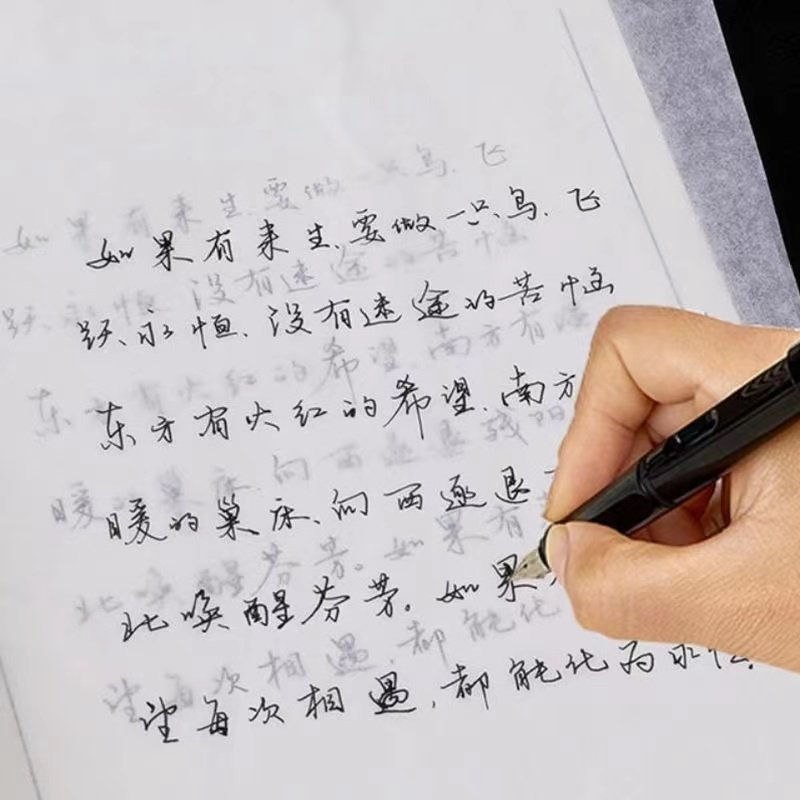 如果有来生，要做一只鸟，飞
跃永恒，没有迷途的苦恼
东方有火红的希望，南方
暖的巢床，向西逐退
北唤醒芬芳。如果
望每次相遇，都能化为永恒